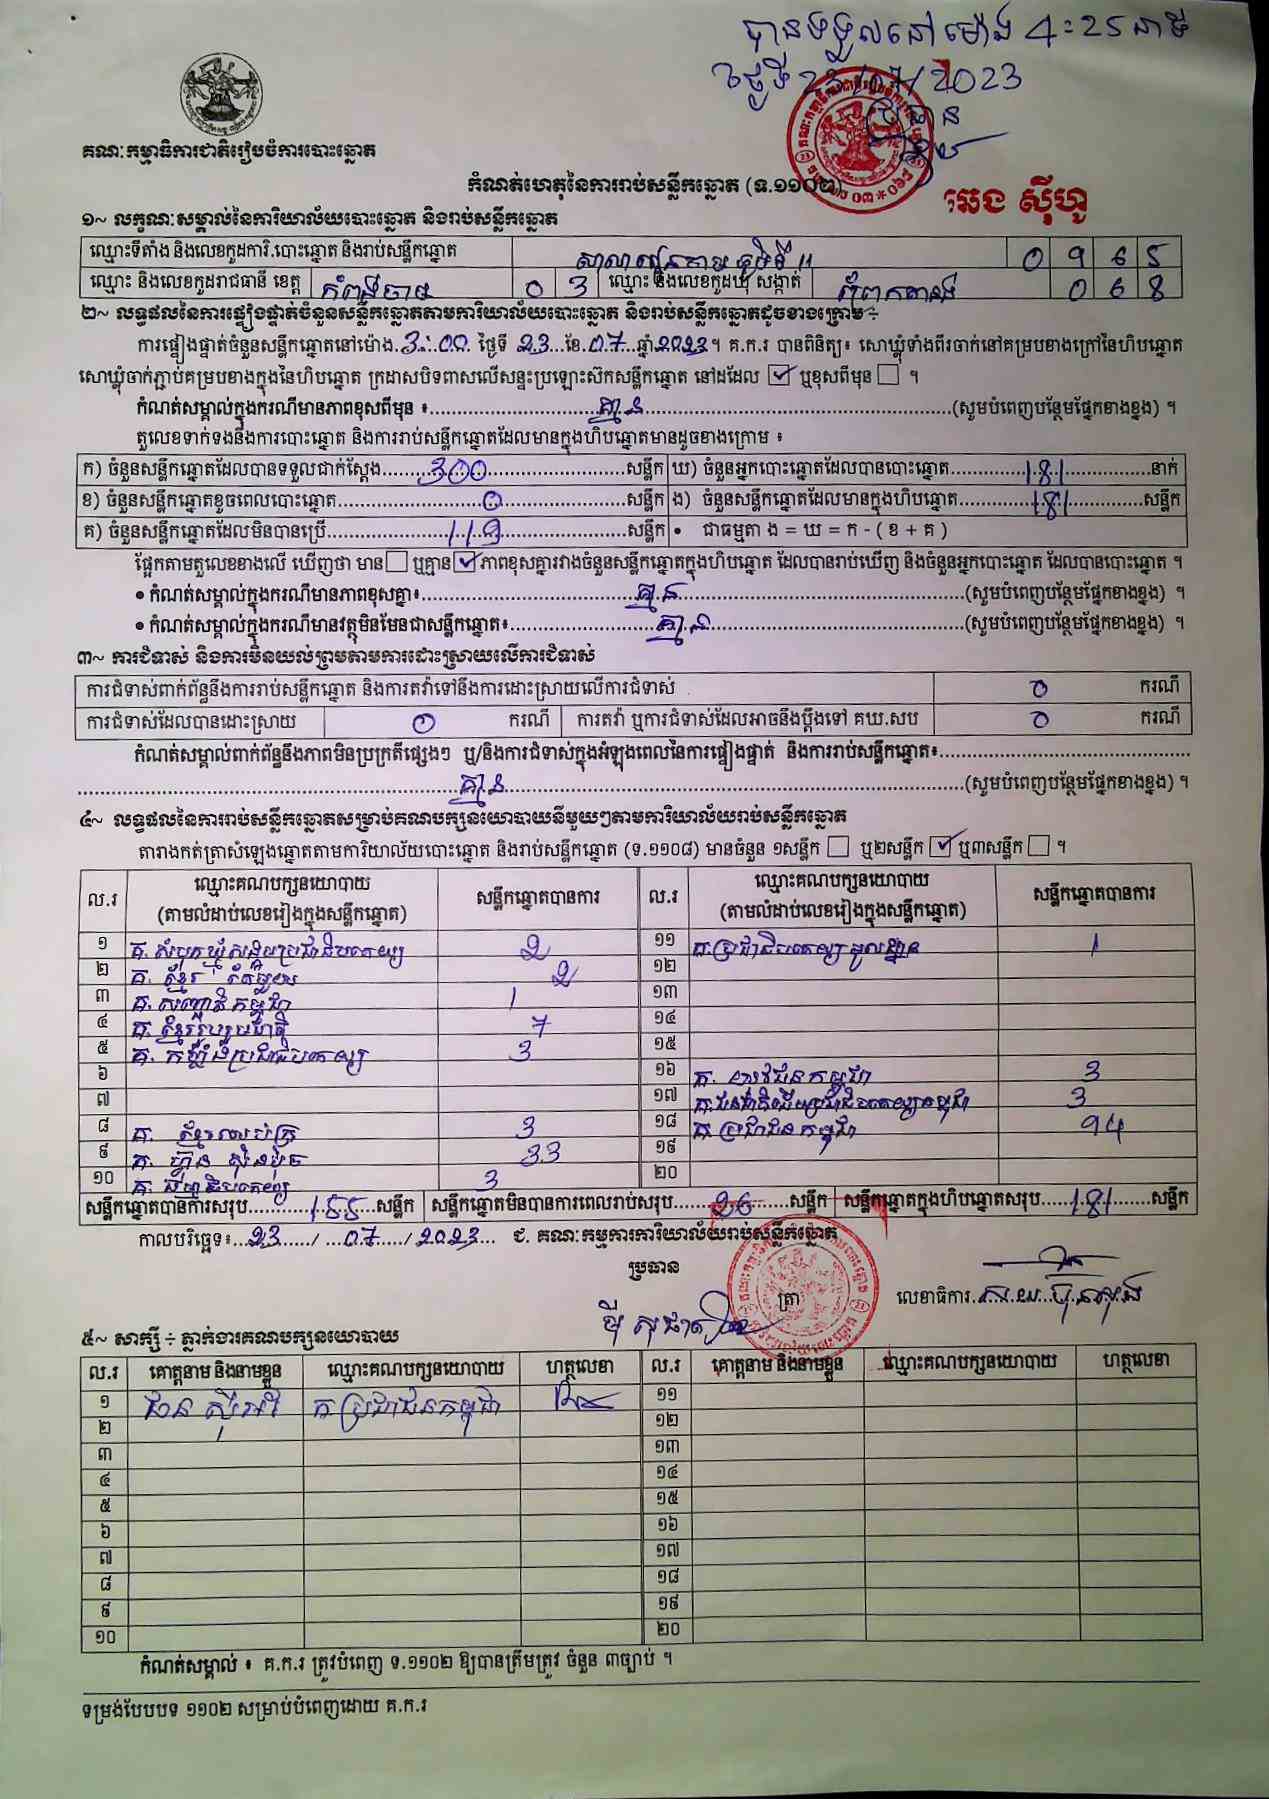 បានទទួលនៅម៉ោង 4:25 នាទី
ថ្ងៃទី 23/07/2023
ប្រធាន
គណៈកម្មាធិការជាតិរៀបចំការបោះឆ្នោត
កំណត់ហេតុនៃការរាប់សន្លឹកឆ្នោត (ទ.១១០២)
ឆេង ស៊ីហូ
១~ លក្ខណៈសម្គាល់នៃការិយាល័យបោះឆ្នោត និងរាប់សន្លឹកឆ្នោត
ឈ្មោះទីតាំង និងលេខកូដការិ.បោះឆ្នោត និងរាប់សន្លឹកឆ្នោត 0 9 6 5
ឈ្មោះ និងលេខកូដរាជធានី ខេត្ត កំពង់ចាម 0 3 ឈ្មោះ និងលេខកូដឃុំ សង្កាត់ 0 6 8
២~ លទ្ធផលនៃការផ្ទៀងផ្ទាត់ចំនួនសន្លឹកឆ្នោតតាមការិយាល័យបោះឆ្នោត និងរាប់សន្លឹកឆ្នោតដូចខាងក្រោម ÷
ការផ្ទៀងផ្ទាត់ចំនួនសន្លឹកឆ្នោតនៅម៉ោង 3:00 ថ្ងៃទី 23 ខែ 07 ឆ្នាំ 2023 ។ គ.ក.រ បានពិនិត្យ៖ សោឃ្លុំទាំងពីរចាក់នៅគម្របខាងក្រៅនៃហិបឆ្នោត
សោឃ្លុំចាក់ភ្ជាប់គម្របខាងក្នុងនៃហិបឆ្នោត ក្រដាសបិទពាសលើសន្ទះប្រឡោះស៊កសន្លឹកឆ្នោត នៅដដែល ☑ ឬខុសពីមុន ☐ ។
កំណត់សម្គាល់ក្នុងករណីមានភាពខុសពីមុន ៖ គ្មាន (សូមបំពេញបន្ថែមផ្នែកខាងខ្នង) ។
តួលេខទាក់ទងនឹងការបោះឆ្នោត និងការរាប់សន្លឹកឆ្នោតដែលមានក្នុងហិបឆ្នោតមានដូចខាងក្រោម ៖
ក) ចំនួនសន្លឹកឆ្នោតដែលបានទទួលជាក់ស្តែង 300 សន្លឹក ឃ) ចំនួនអ្នកបោះឆ្នោតដែលបានបោះឆ្នោត 181 នាក់
ខ) ចំនួនសន្លឹកឆ្នោតខូចពេលបោះឆ្នោត 0 សន្លឹក ង) ចំនួនសន្លឹកឆ្នោតដែលមានក្នុងហិបឆ្នោត 181 សន្លឹក
គ) ចំនួនសន្លឹកឆ្នោតដែលមិនបានប្រើ 119 សន្លឹក • ជាធម្មតា ង = ឃ = ក - ( ខ + គ )
ផ្អែកតាមតួលេខខាងលើ ឃើញថា មាន ☐ ឬគ្មាន ☑ ភាពខុសគ្នារវាងចំនួនសន្លឹកឆ្នោតក្នុងហិបឆ្នោត ដែលបានរាប់ឃើញ និងចំនួនអ្នកបោះឆ្នោត ដែលបានបោះឆ្នោត ។
• កំណត់សម្គាល់ក្នុងករណីមានភាពខុសគ្នា៖ គ្មាន (សូមបំពេញបន្ថែមផ្នែកខាងខ្នង) ។
• កំណត់សម្គាល់ក្នុងករណីមានវត្ថុមិនមែនជាសន្លឹកឆ្នោត៖ គ្មាន (សូមបំពេញបន្ថែមផ្នែកខាងខ្នង) ។
៣~ ការជំទាស់ និងការមិនយល់ព្រមតាមការដោះស្រាយលើការជំទាស់
ការជំទាស់ពាក់ព័ន្ធនឹងការរាប់សន្លឹកឆ្នោត និងការតវ៉ាទៅនឹងការដោះស្រាយលើការជំទាស់ 0 ករណី
ការជំទាស់ដែលបានដោះស្រាយ 0 ករណី ការតវ៉ា ឬការជំទាស់ដែលអាចនឹងប្តឹងទៅ គឃ.សប 0 ករណី
កំណត់សម្គាល់ពាក់ព័ន្ធនឹងភាពមិនប្រក្រតីផ្សេងៗ ឬ/និងការជំទាស់ក្នុងអំឡុងពេលនៃការផ្ទៀងផ្ទាត់ និងការរាប់សន្លឹកឆ្នោត៖
គ្មាន (សូមបំពេញបន្ថែមផ្នែកខាងខ្នង) ។
៤~ លទ្ធផលនៃការរាប់សន្លឹកឆ្នោតសម្រាប់គណបក្សនយោបាយនីមួយៗតាមការិយាល័យរាប់សន្លឹកឆ្នោត
តារាងកត់ត្រាសំឡេងឆ្នោតតាមការិយាល័យបោះឆ្នោត និងរាប់សន្លឹកឆ្នោត (ទ.១១០៨) មានចំនួន ១សន្លឹក ☐ ឬ២សន្លឹក ☑ ឬ៣សន្លឹក ☐ ។
ល.រ ឈ្មោះគណបក្សនយោបាយ (តាមលំដាប់លេខរៀងក្នុងសន្លឹកឆ្នោត) សន្លឹកឆ្នោតបានការ ល.រ ឈ្មោះគណបក្សនយោបាយ (តាមលំដាប់លេខរៀងក្នុងសន្លឹកឆ្នោត) សន្លឹកឆ្នោតបានការ
១ គ. សំបុកឃ្មុំសង្គមប្រជាធិបតេយ្យ 2 ១១ គ.ប្រជាធិបតេយ្យមូលដ្ឋាន 1
២ គ. ខ្មែររួមតែមួយ 2 ១២
៣ គ. សញ្ជាតិកម្ពុជា 1 ១៣
៤ គ. ខ្មែររួបរួមជាតិ 7 ១៤
៥ គ. កម្លាំងប្រជាធិបតេយ្យ 3 ១៥
៦ ១៦ គ. យុវជនកម្ពុជា 3
៧ ១៧ គ.ជនជាតិដើមប្រជាធិបតេយ្យកម្ពុជា 3
៨ គ. ខ្មែរឈប់ក្រ 3 ១៨ គ. ប្រជាជនកម្ពុជា 94
៩ គ. ហ្វ៊ុនស៊ិនប៉ិច 33 ១៩
១០ គ. ធម្មាធិបតេយ្យ 3 ២០
សន្លឹកឆ្នោតបានការសរុប 155 សន្លឹក សន្លឹកឆ្នោតមិនបានការពេលរាប់សរុប 26 សន្លឹក សន្លឹកឆ្នោតក្នុងហិបឆ្នោតសរុប 181 សន្លឹក
កាលបរិច្ឆេទ៖ 23 / 07 / 2023 ជ. គណៈកម្មការការិយាល័យរាប់សន្លឹកឆ្នោត
ប្រធាន
ត្រា
លេខាធិការ
៥~ សាក្សី ÷ ភ្នាក់ងារគណបក្សនយោបាយ
ល.រ គោត្តនាម និងនាមខ្លួន ឈ្មោះគណបក្សនយោបាយ ហត្ថលេខា ល.រ គោត្តនាម និងនាមខ្លួន ឈ្មោះគណបក្សនយោបាយ ហត្ថលេខា
១ គ ប្រជាជនកម្ពុជា ១១
២ ១២
៣ ១៣
៤ ១៤
៥ ១៥
៦ ១៦
៧ ១៧
៨ ១៨
៩ ១៩
១០ ២០
កំណត់សម្គាល់ ៖ គ.ក.រ ត្រូវបំពេញ ទ.១១០២ ឱ្យបានត្រឹមត្រូវ ចំនួន ៣ច្បាប់ ។
ទម្រង់បែបបទ ១១០២ សម្រាប់បំពេញដោយ គ.ក.រ